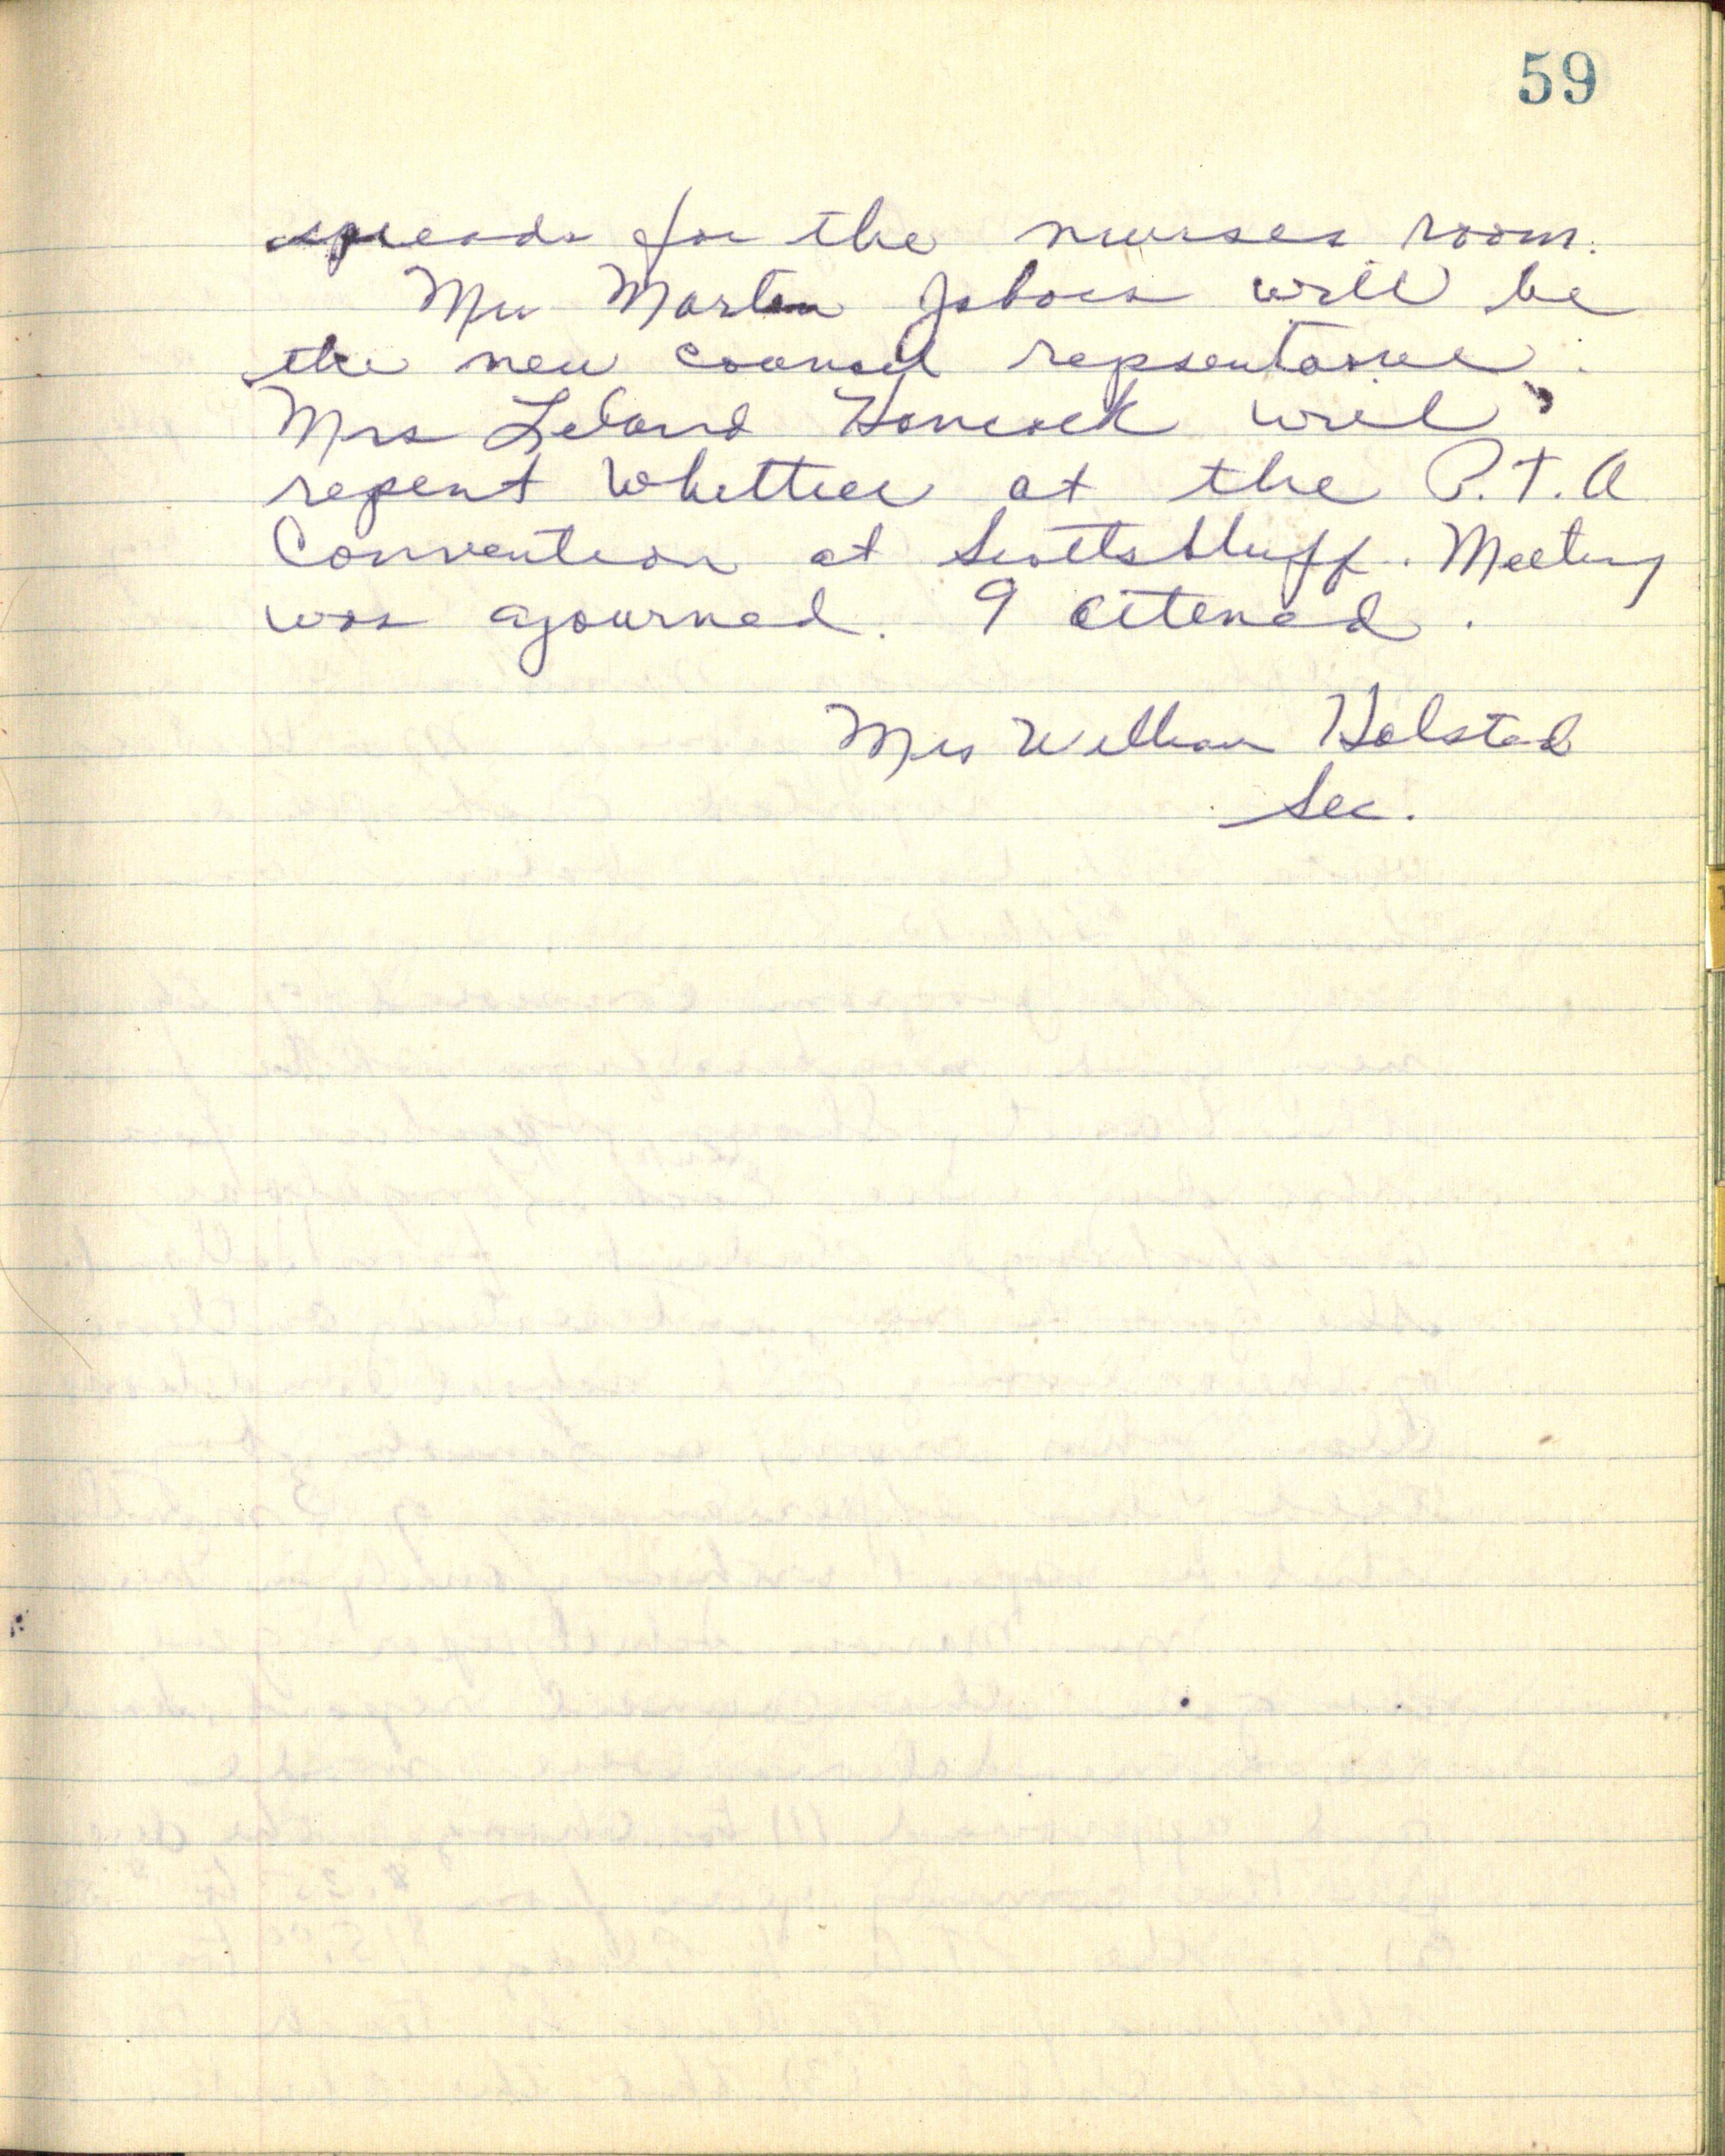 59
spreads for the nurses room.
Mrs Marten will be
the new council repsentative.
Mrs Leland Hancock will
repent Whittier at the P.T.A
Convention at Scottsbluff. Meeting
was ajourned. 9 attened.
Mrs William Halsted
Sec.